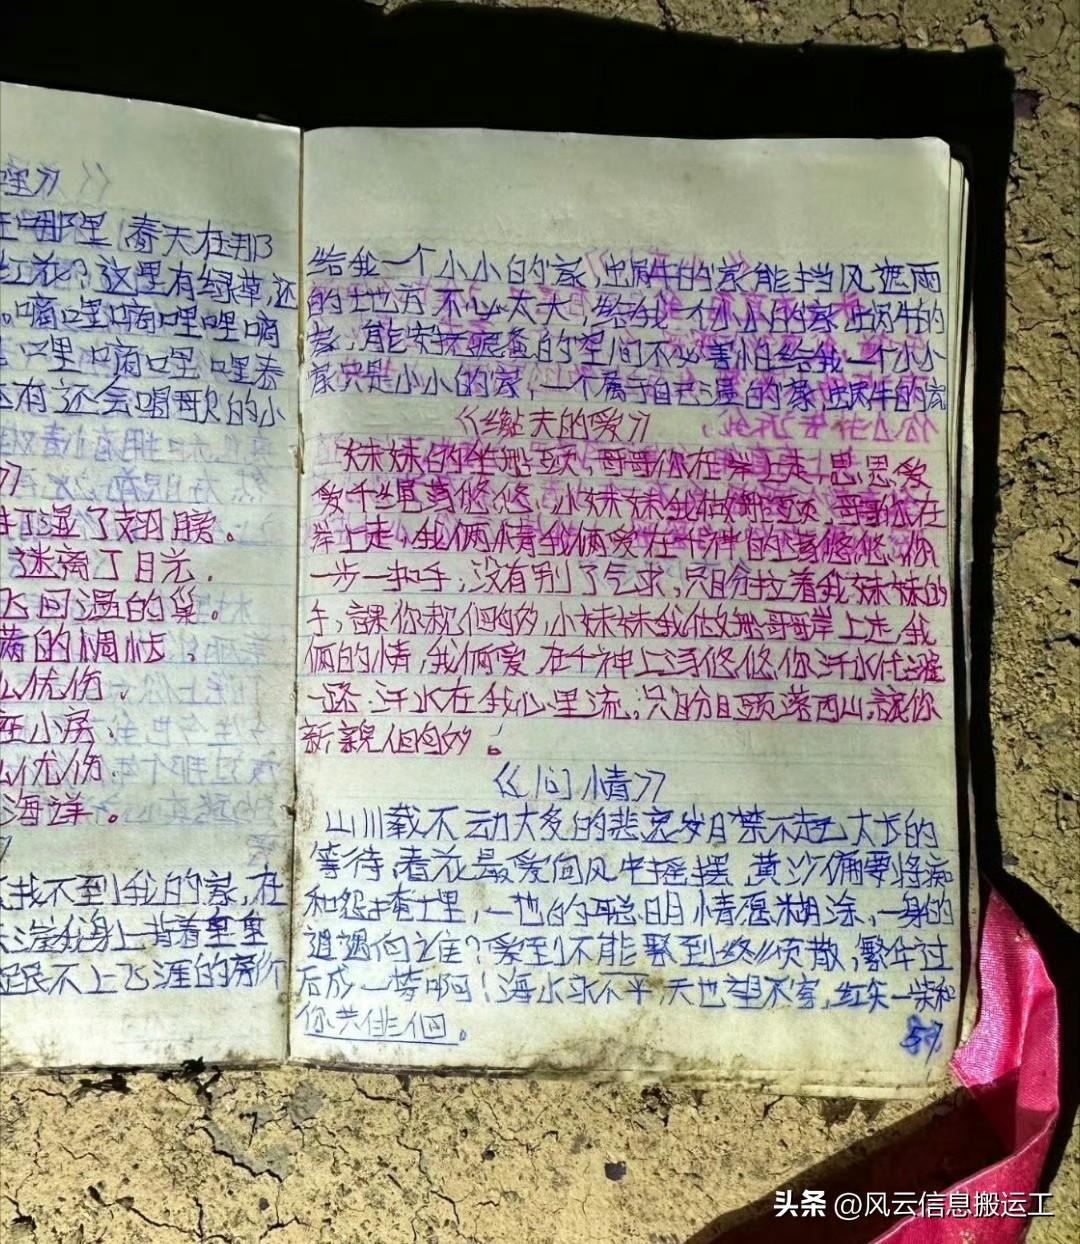 哩》
在哪里春天在那
红花?这里有绿草,还
。嘀哩嘀哩哩嘀
哩 嘀哩哩春
还有还会唱歌的小
打湿了翅膀。
迷离了目光.
飞回温的巢。
的惆怅.
么忧伤.
小房.
么忧伤.
海洋。
找不到我的家,在
涯我身上背着重重
不上飞涯的
给我一个小小的家,蜗牛的家能挡风遮雨
的地方不必太大,给我一个小小的家蜗牛的
家,能 的空间不必害怕给我一个小小
家只是小小的家,一个属于自己 的家蜗牛的家
《纤夫的爱》
妹妹的坐船头,哥哥你在岸上走!恩恩爱
爱千绳荡悠悠,小妹妹我 船头 哥哥你在
岸上走,我俩情我俩爱在千神的荡悠悠.你
一步一扣手,没有别了乞求,只盼拉着我妹妹的
手,讓你 个够,小妹妹我 船哥哥岸上走,我
俩的情,我俩爱 在千神上荡悠悠,你汗水 洒
一路.汗水在我心里流,只盼日头落西山,讓你
新親個夠。
《问情》
山川载不动大多的悲哀岁月禁不起太长的
等待,春花最爱向风中摇摆 黄沙偏要将痴
和怨撞土里,一地的聪明情愿糊涂,一身的
遭遇向谁?爱到不能聚到终须散,繁华过
后成一梦啊!海水永不平,天也望不穿,红尘一 和
你共徘徊。
57
头条 @风云信息搬运工